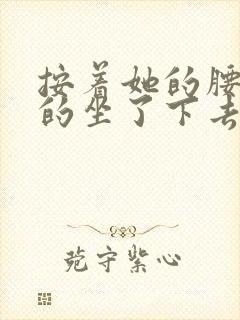 按着她的腰
的坐了下去
苑守紫心